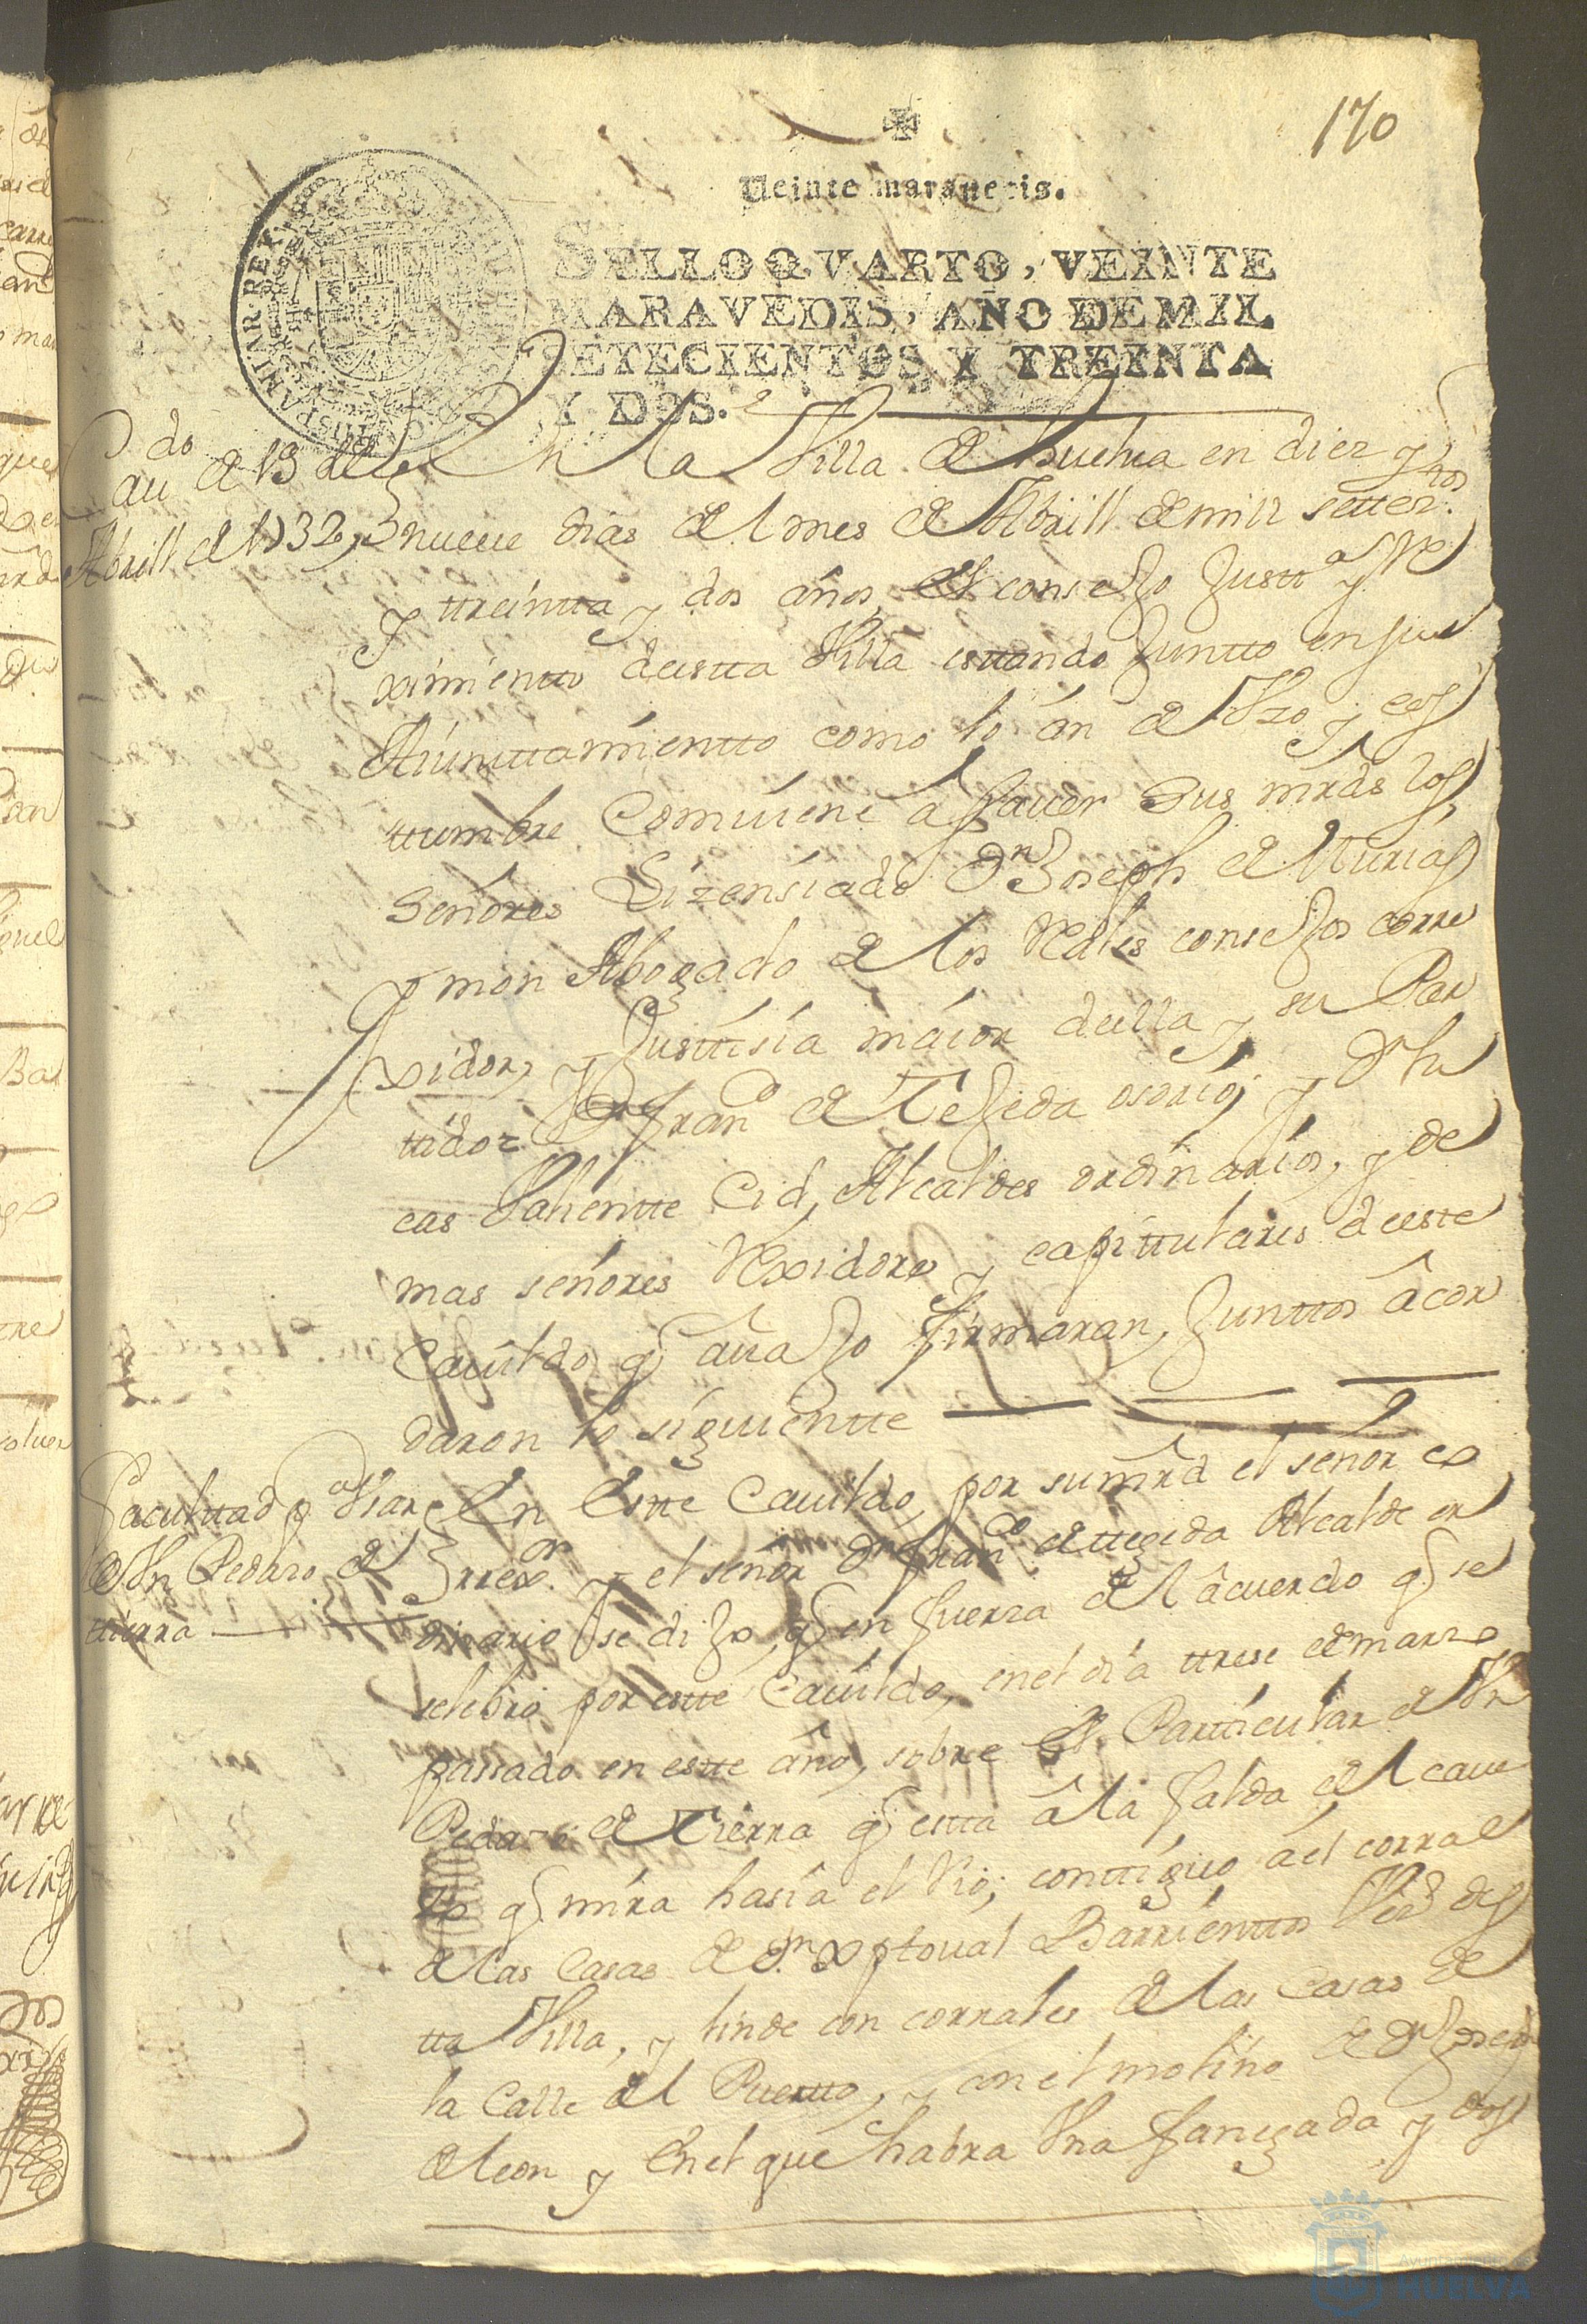 170
Veinte maravedis.
SELLO QVARTO, VEINTE
MARAVEDIS, AÑO DE MIL
SETECIENTOS Y TREINTA
Y DOS.
HISPANIAR. REX
Cdo
au de 19 de
Abrill de 1732
En la Villa de Huelva en diez y
nueue dias del mes de Abrill de mill settezos
y ttreintta y dos años, el consejo Justta y Re
ximientto deestta Villa esttando Juntto en su
Aiunttamientto como lo án de Vzo y cos
ttumbre Comuiene a sauer Sus mrds los
Señores Lizensiado Dn Joseph de Murias
y mon Abogado de los Reales consejos corre
xidor, y Justtisia máior deella y su Par
tido Dn Franco de Tejeda osorio, y Dn Lu
cas Valientte Cid, Alcaldes ordinarios, y de
mas señores Rexidores y capittulares deeste
Cauildo q auajo firmaran, Junttos âcor
daron lo siguientte
Facultad pa Viar
de Vn Pedazo de
ttierra
En Estte Cauildo, por su mrd el señor co
rrexor y el señor Dn Franco de ttegeda Alcalde or
dinario se dijo, q en fuerza del âcuerdo q se
selebró por estte Cauildo, en el día ttrese de marzo
passado en estte âño, sobre el Particular de Vn
Pedazo de Tierra q estta â la falda del caue
zo q mira hasia el Rio; conttiguo a el corral
de las Casas de Dn Xptoual Barrienttos Vezo des
tta Villa, y linde con corrales de las Casas de
la Calle del Puertto, y con el molino de Dn Joseph
de leon y En el que habra Vna fanegada y dos
Ayuntamiento de
HUELVA